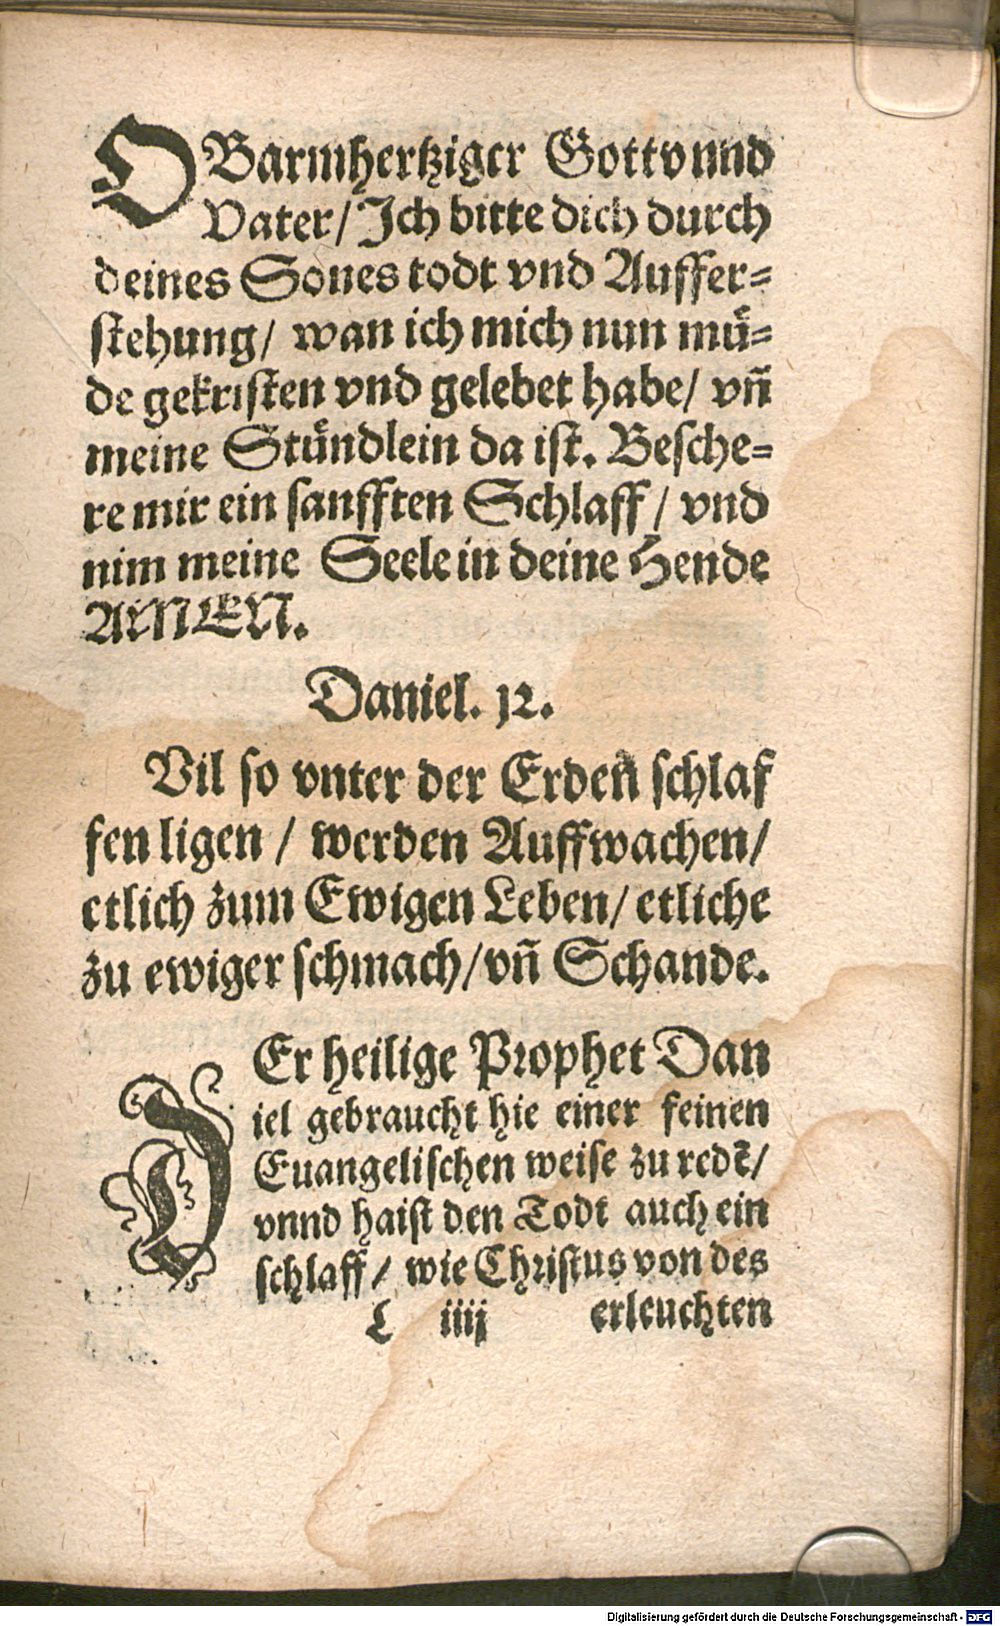 O Barmhertziger Gott vnnd
Vater/ Ich bitte dich durch
deines Sones todt vnd Auffer⸗
stehung/ wan ich mich nun mü⸗
de gekristen vnd gelebet habe/ vñ
meine Stündlein da ist. Besche⸗
re mir ein sanfften Schlaff/ vnd
nim meine Seele in deine Hende
AMEN.
Daniel. 12.
Vil so vnter der Erden schlaf
fen ligen/ werden Auffwachen/
etlich zum Ewigen Leben/ etliche
zu ewiger schmach/ vñ Schande.
DEr heilige Prophet Dan
iel gebraucht hie einer feinen
Euangelischen weise zu redē/
vnnd haist den Todt auch ein
schlaff/ wie Christus von des
C iiij erleuchten
Digitalisierung gefördert durch die Deutsche Forschungsgemeinschaft - DFG